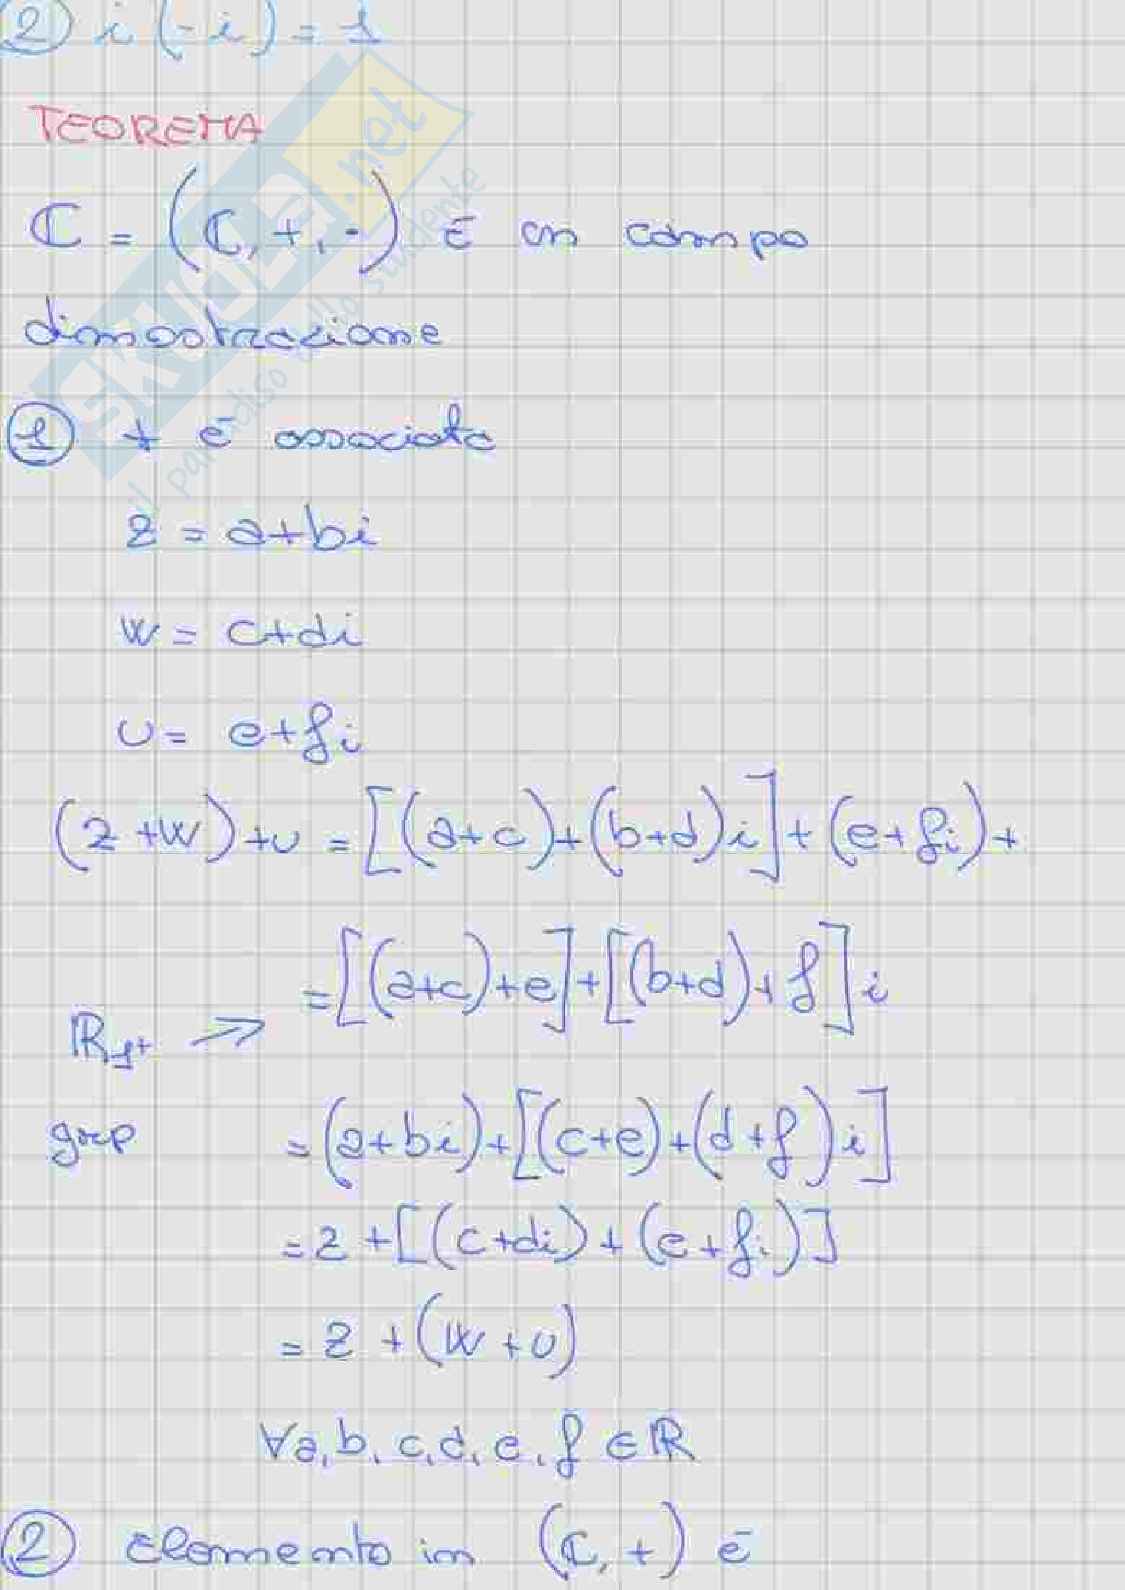 ② i(-i) = 1
TEOREMA
ℂ = (ℂ, +, ·) È un campo
dimostrazione
① + è associata
z = a+bi
w = c+di
u = e+fi
(z+w)+u = [(a+c)+(b+d)i]+(e+fi)+
= [(a+c)+e]+[(b+d)+f]i
ℝ, + >>
grp = (a+bi)+[(c+e)+(d+f)i]
= z+[(c+di)+(e+fi)]
= z+(w+u)
∀a, b, c, d, e, f ∈ ℝ
② Elemento in (ℂ, +) è
SKUOLA.net
il paradiso dello studente